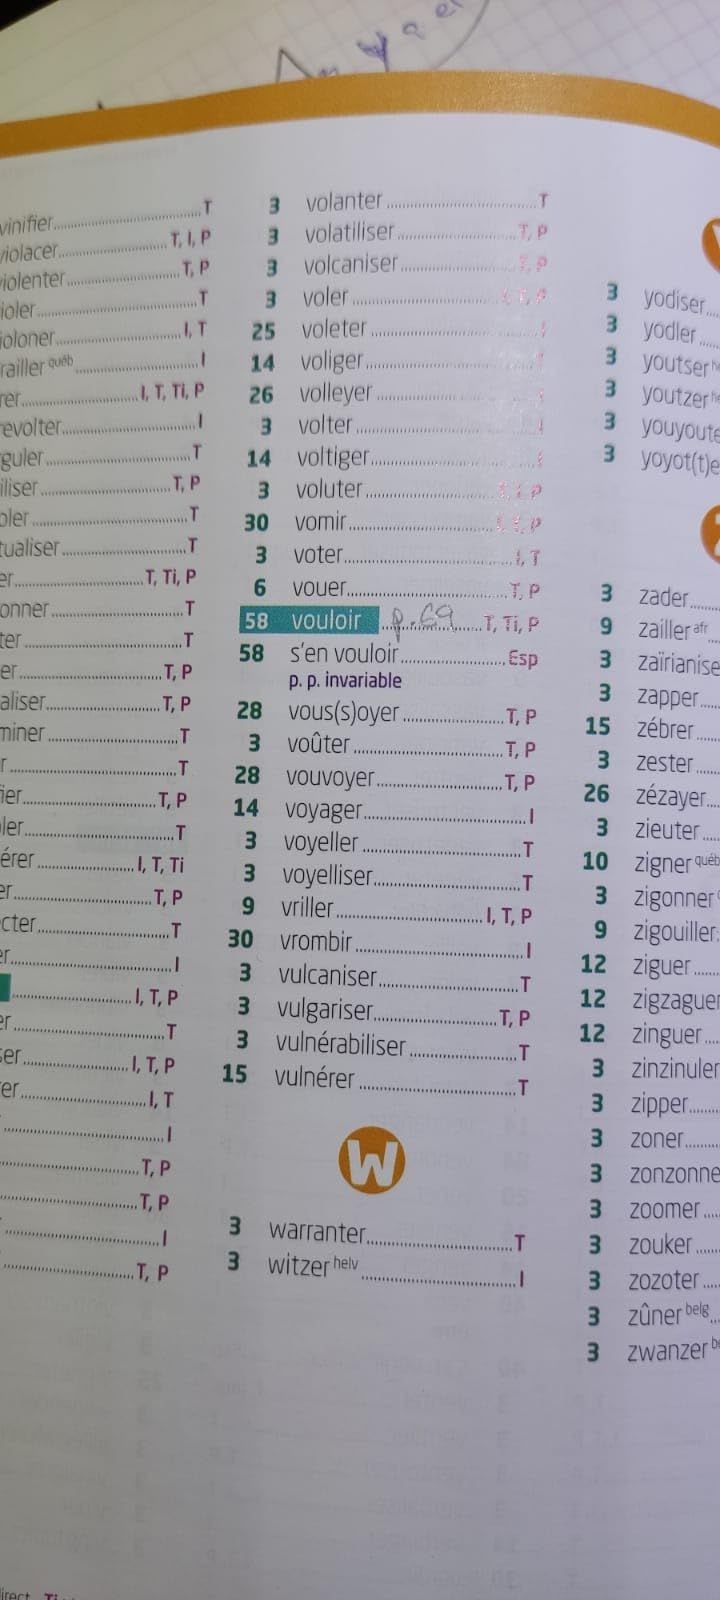 vinifier T
violacer T, I, P
violenter T, P
ioler T
ioloner I, T
railler québ I
rer I, T, Ti, P
evolter I
guler T
iliser T, P
oler T
tualiser T
er T, Ti, P
onner T
ter T
er T, P
aliser T, P
miner T
r T
ier T, P
ler T
érer I, T, Ti
er T, P
cter T
er I
I, T, P
er T
ser I, T, P
er I, T
I
T, P
T, P
I
T, P
3 volanter T
3 volatiliser T, P
3 volcaniser T, P
3 voler I, T, P
25 voleter I
14 voliger T
26 volleyer I
3 volter I
14 voltiger I
3 voluter T, I, P
30 vomir I, T, P
3 voter I, T
6 vouer T, P
58 vouloir p. 69 T, Ti, P
58 s'en vouloir Esp
p. p. invariable
28 vous(s)oyer T, P
3 voûter T, P
28 vouvoyer T, P
14 voyager I
3 voyeller T
3 voyelliser T
9 vriller I, T, P
30 vrombir I
3 vulcaniser T
3 vulgariser T, P
3 vulnérabiliser T
15 vulnérer T
W
3 warranter T
3 witzer helv I
3 yodiser
3 yodler
3 youtser
3 youtzer
3 youyoute
3 yoyot(t)e
3 zader
9 zailler afr
3 zaïrianise
3 zapper
15 zébrer
3 zester
26 zézayer
3 zieuter
10 zigner québ
3 zigonner
9 zigouiller
12 ziguer
12 zigzaguer
12 zinguer
3 zinzinuler
3 zipper
3 zoner
3 zonzonne
3 zoomer
3 zouker
3 zozoter
3 zûner belg
3 zwanzer be
irect Ti